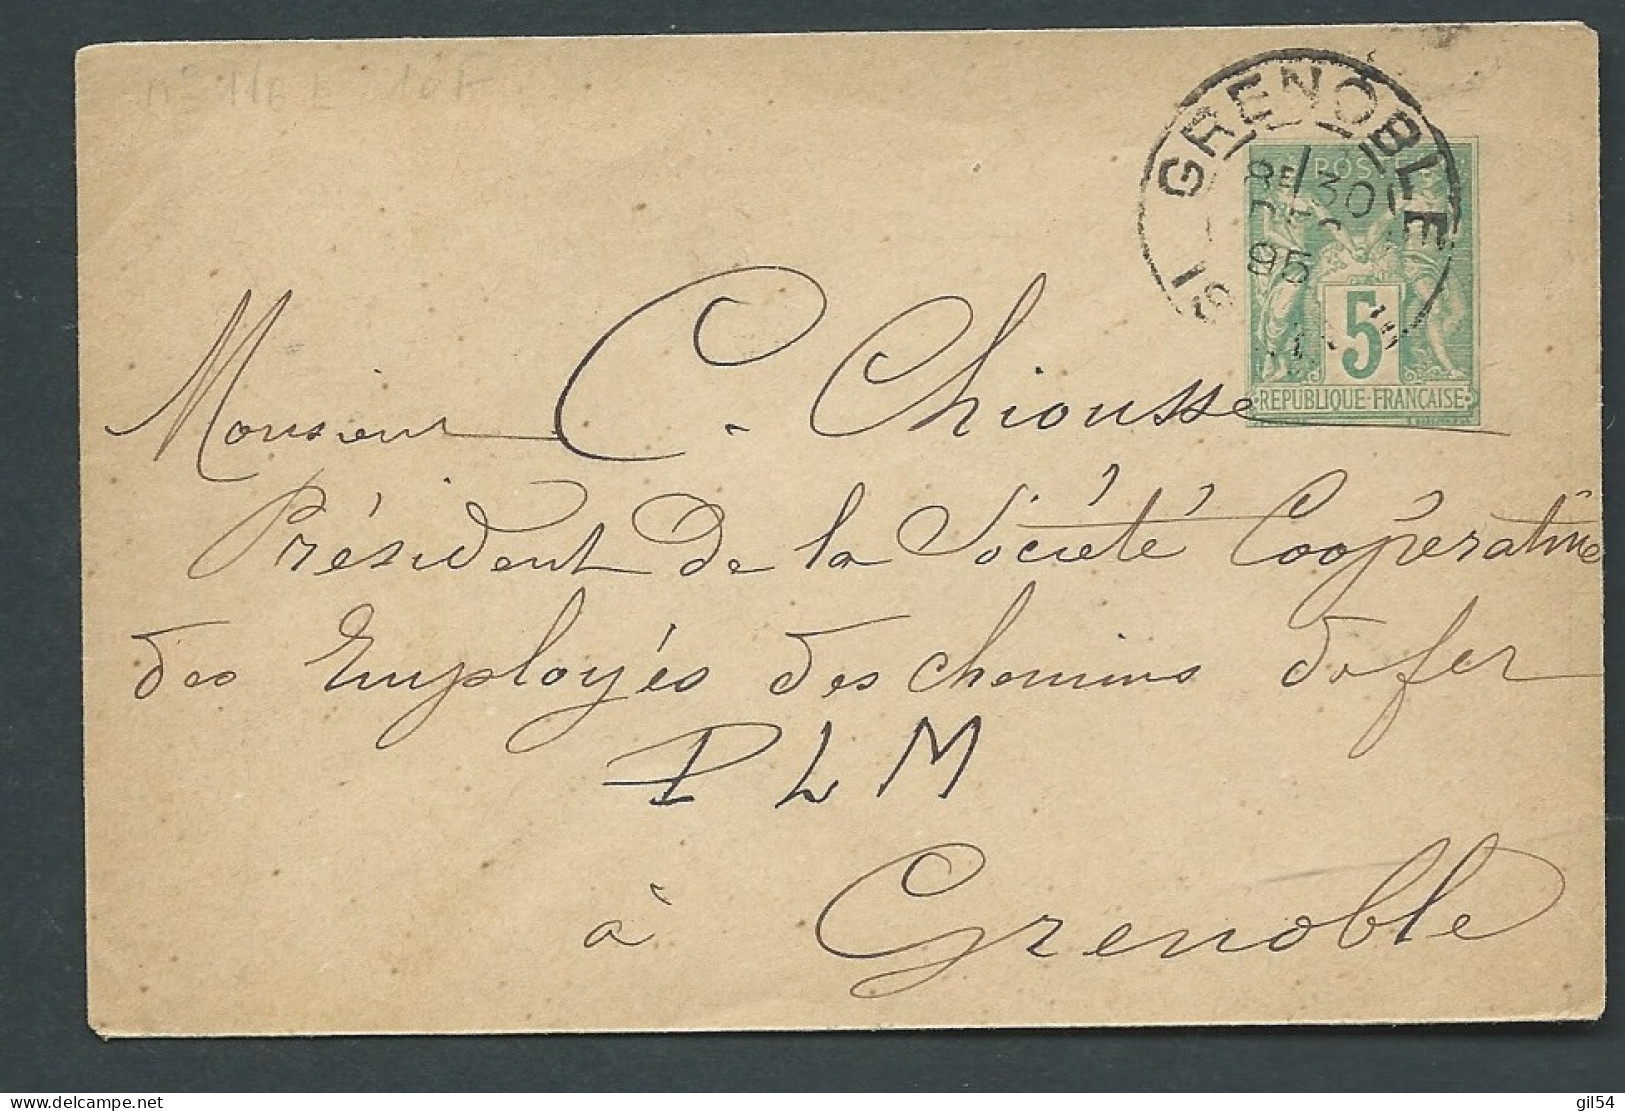 nº 116 E 10 F
GRENOBLE
8E/30
DEC
95
ISERE
POSTES
5
REPUBLIQUE-FRANCAISE
Monsieur C. Chiousse
Président de la Société Coopérative
des Employés des chemins de fer
PLM
à Grenoble
gil54